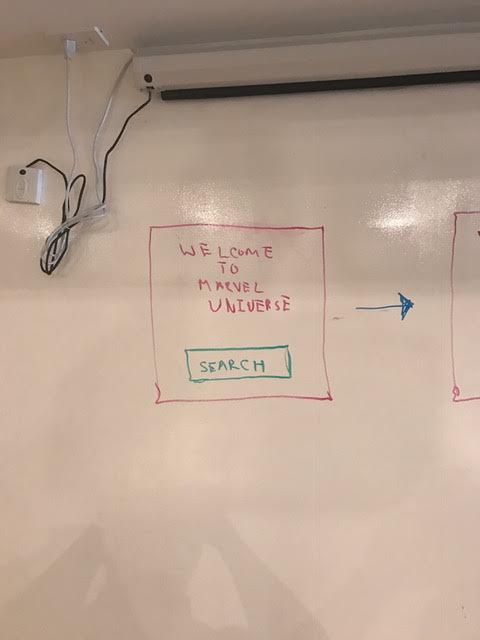 WELCOME
TO
MARVEL
UNIVERSE
SEARCH